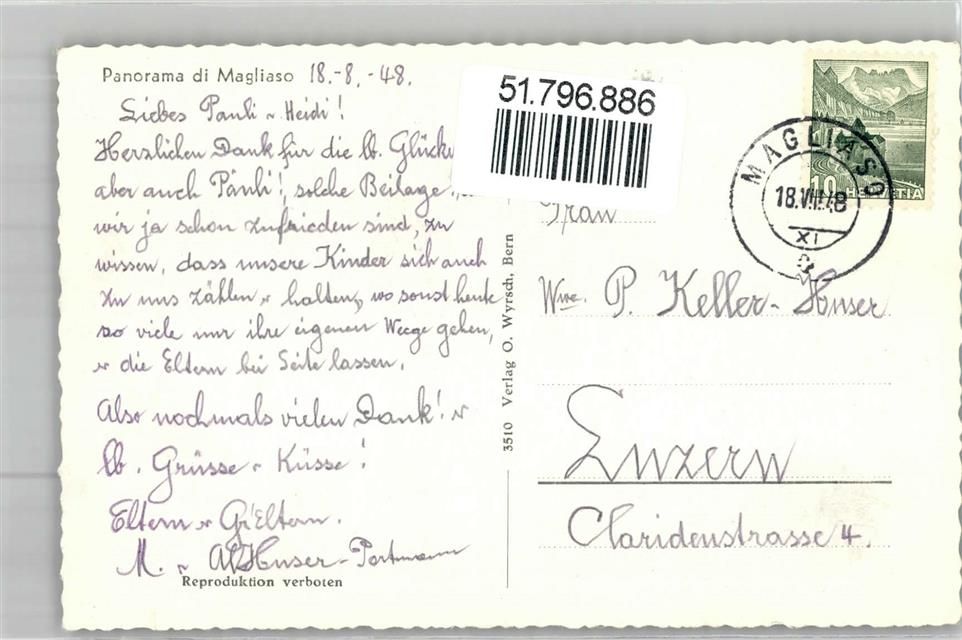 Panorama di Magliaso 18.-8.-48.
Liebes Päuli u Heidi!
Herzlichen Dank für die lb. Glückw
aber auch Päuli!, solche Beilage
wir ja schon zufrieden sind, zu
wissen, dass unsere Kinder sich auch
zu uns zählen u halten, wo sonst heute
so viele nur ihre eigenen Weege gehen,
u die Eltern bei Seite lassen.
Also nochmals vielen Dank! u
lb. Grüsse u Küsse!
Eltern u Gr'Eltern.
M. u Huser-Portmann
Reproduktion verboten
51.796.886
3510 Verlag O. Wyrsch, Bern
MAGLIASO
18.VIII.48
XI
10 HELVETIA
Frau
Wwe. P. Keller-Huser
Luzern
Claridenstrasse 4.